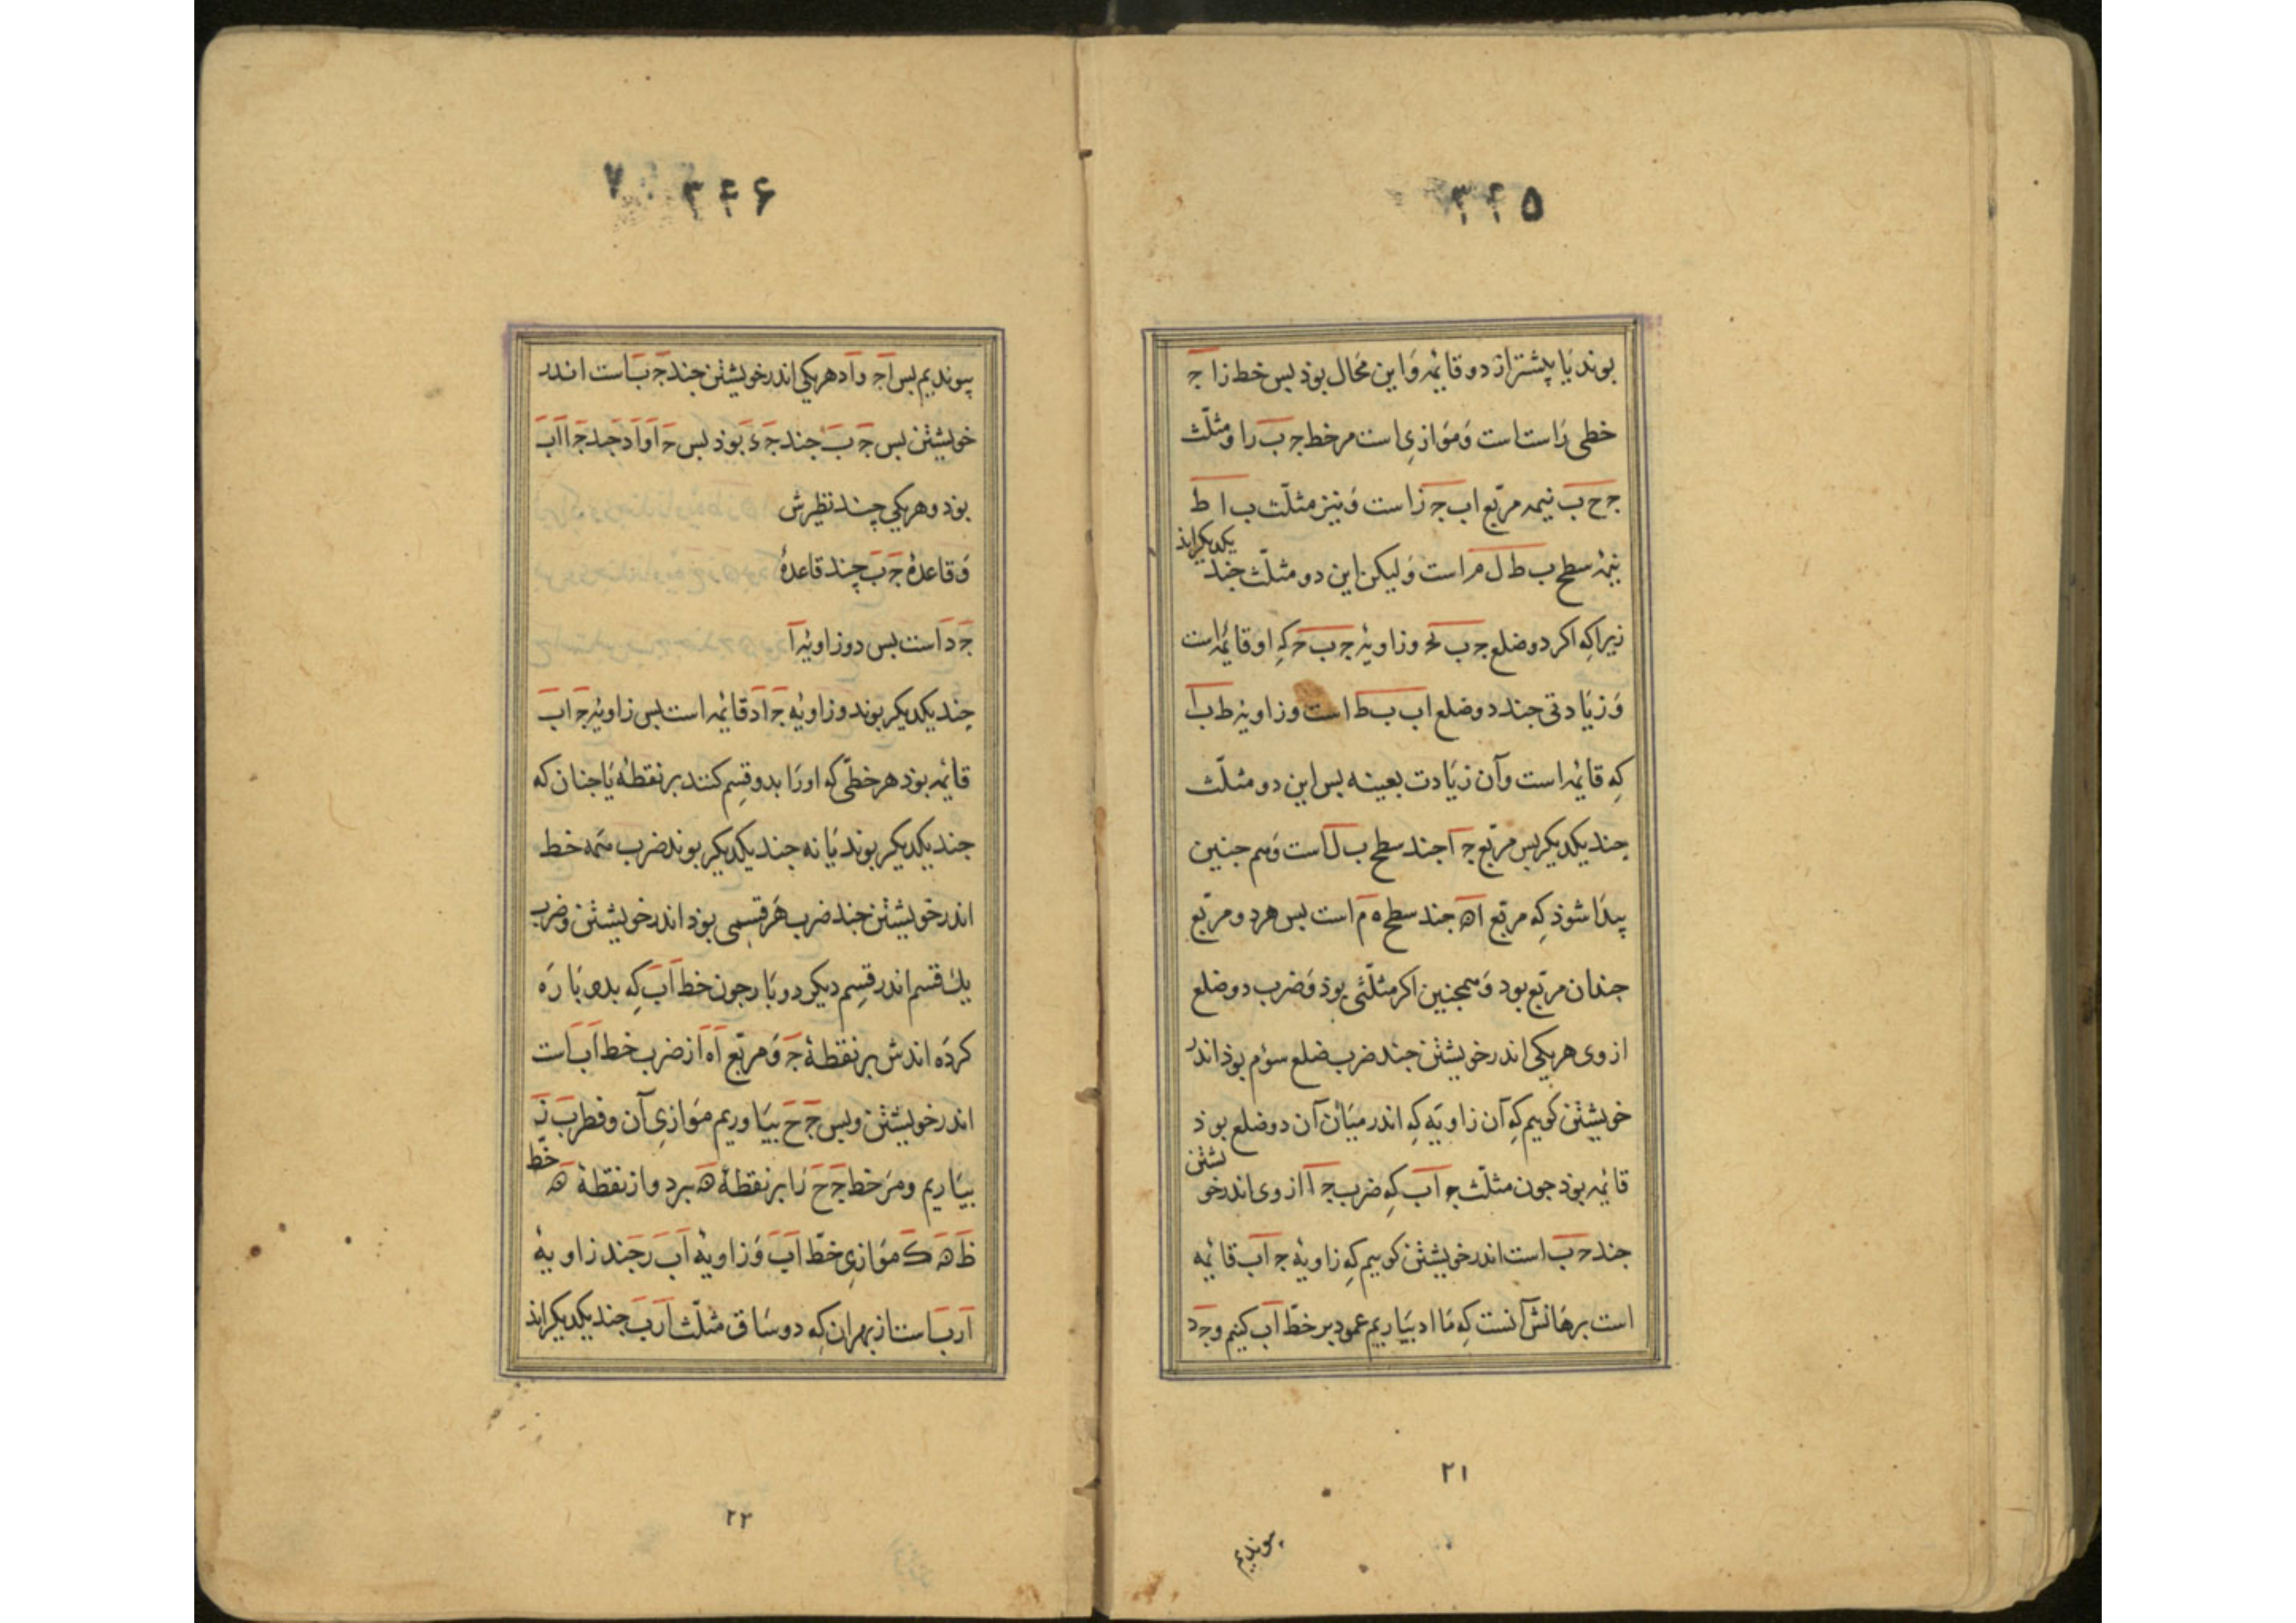 ۳۴۵
بوند یا بیشتر از دو قائمه و این محال بوذ بس خط زا ج
خطی راست است و موازی است مر خط ج ب را و مثلّث
ج ح ب نیمه مربّع اب ج ز است و نیز مثلّث ب ا ط
نیمهٔ سطح ب ط ل م است و لیکن این دو مثلّث جند یکدیکراند
زیرا که اکر دو ضلع ج ب ح و زاویهٔ ج ب ح که او قائمه است
و زیادتی جند دو ضلع اب ب ط است و زاویهٔ ط ب ا
که قائمه است و آن زیادت بعینه بس این دو مثلّث
جند یکدیکر بس مربّع ج ا جند سطح ب ل است و هم جنین
پیدا شوذ که مربّع اه جند سطح ه م است بس هر دو مربّع
جندان مربّع بود و همجنین اکر مثلّثی بوذ و ضرب دو ضلع
از وی هر یکی اندر خویشتن جند ضرب ضلع سوم بوذ اندر
خویشتن کوییم که آن زاویه که اندر میان آن دو ضلع بوذ
قائمه بوذ جون مثلّث ج اب که ضرب ج ا از وی اندر خویشتن
جند ح ب است اندر خویشتن کوییم که زاویهٔ ج اب قائمه
است برهانش آنست که ما اد بیاریم عمود بر خطّ اب کنیم و ج د
۲۱
پیوندیم
۳۴۶ ۷
پیوندیم بس اج و اد هر یکی اندر خویشتن جند ج ب است اندر
خویشتن بس ج ب جند ج د بوذ بس ج ا و اد جند ج ا اب
بوذ و هر یکی چند نظیرش
و قاعدهٔ ج ب چند قاعدهٔ
ج د است بس دو زاویهٔ ا
جند یکدیکر بوند و زاویهٔ ج اد قائمه است بس زاویهٔ ج اب
قائمه بوذ هر خطّی که اورا بدو قسم کنند بر نقطهٔ یا جنان که
جند یکدیکر بوند یا نه جند یکدیکر بوند ضرب همه خط
اندر خویشتن جند ضرب هر قسمی بوذ اندر خویشتن و ضرب
یک قسم اندر قسم دیکر دو بار جون خط اب که بدو پاره
کرده اندش بر نقطهٔ ج و مربّع اه از ضرب خط اب است
اندر خویشتن و بس ج ح بیاوریم موازی آن و قطر ب ز
بیاریم و مر خط ج ح را بر نقطهٔ ه ببرد و از نقطهٔ ه خط
ط ه ک موازی خطّ اب و زاویهٔ اب ر جند زاویهٔ
ارب است از بهر آن که دو ساق مثلّث ارب جند یکدیکراند
۲۲